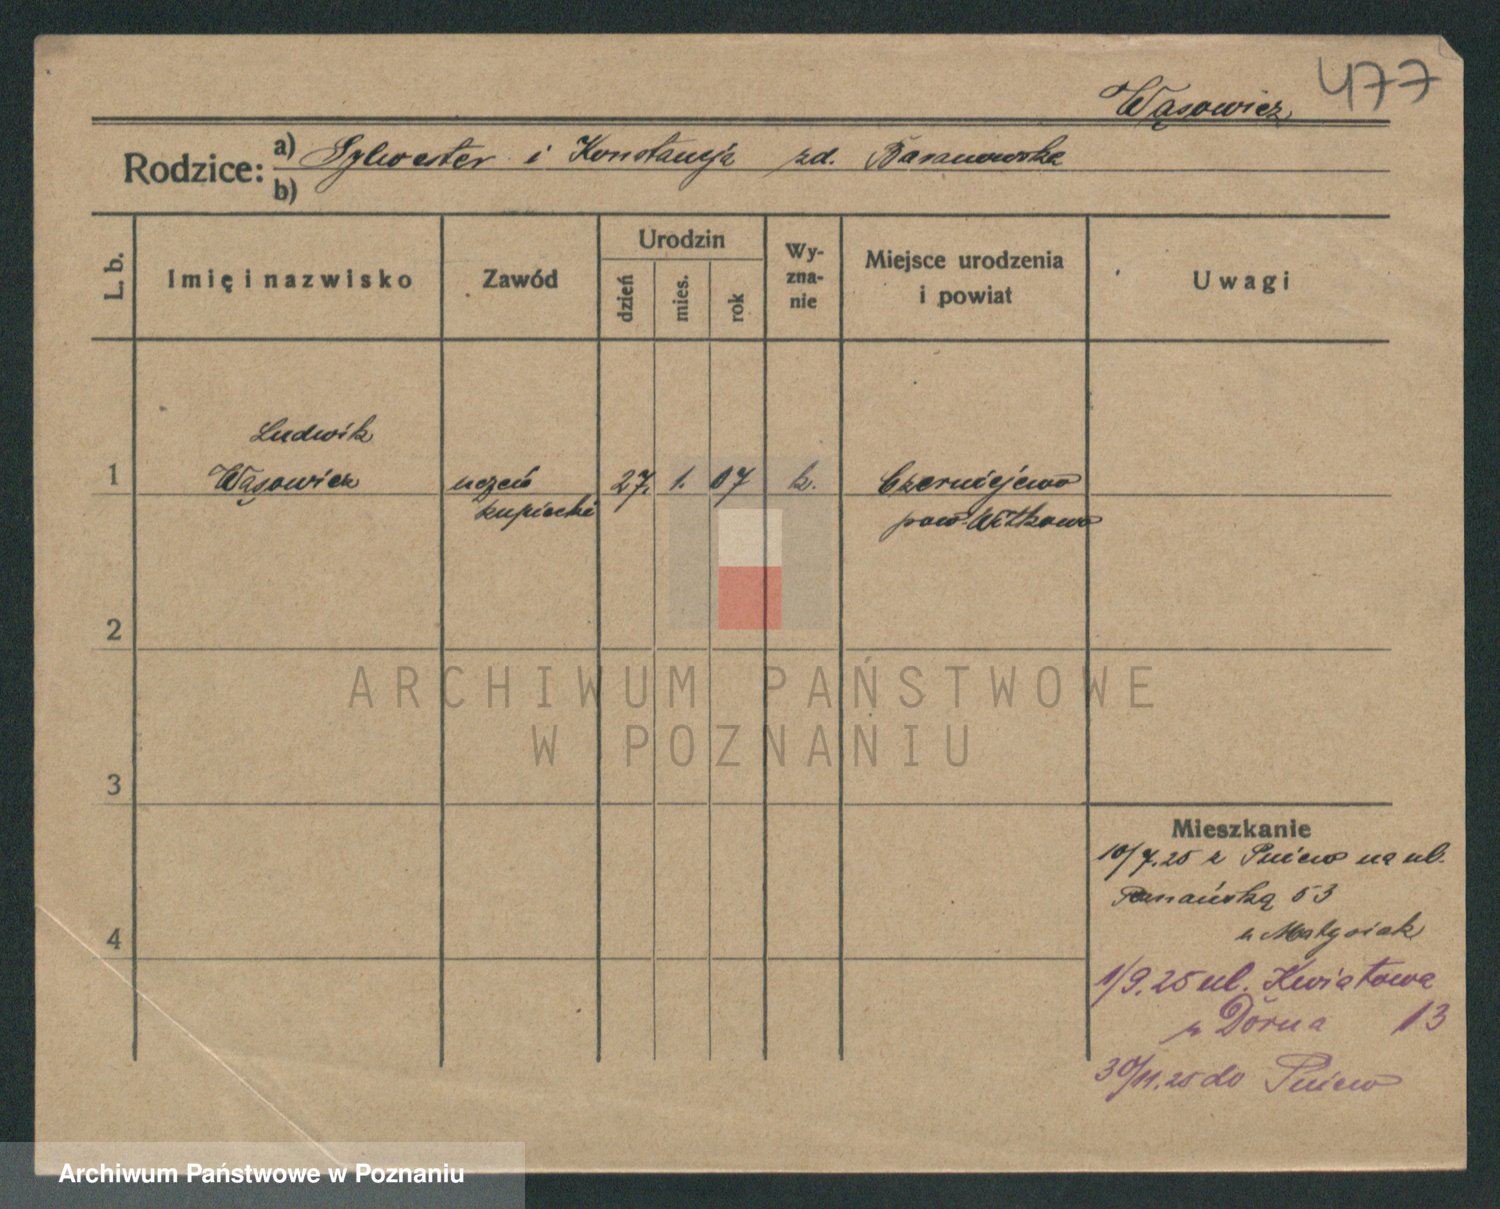 477
Wąsowicz
Rodzice: a) Sylwester i Konstancja zd. Baranowska
b)
L. b.
Imię i nazwisko
Zawód
Urodzin
dzień
mies.
rok
Wy-
zna-
nie
Miejsce urodzenia
i powiat
Uwagi
Ludwik
1 Wąsowicz uczeń 27. 1. 07 k. Czerniejewo
kupiecki pow. Witkowo
2
3
4
ARCHIWUM PAŃSTWOWE
W POZNANIU
Mieszkanie
10/7.25 z Pniew na ul.
Poznańską 53
u Matysiak
1/9.25 ul. Kwiatowa
u Dörna 13
30/11.25 do Pniew
Archiwum Państwowe w Poznaniu